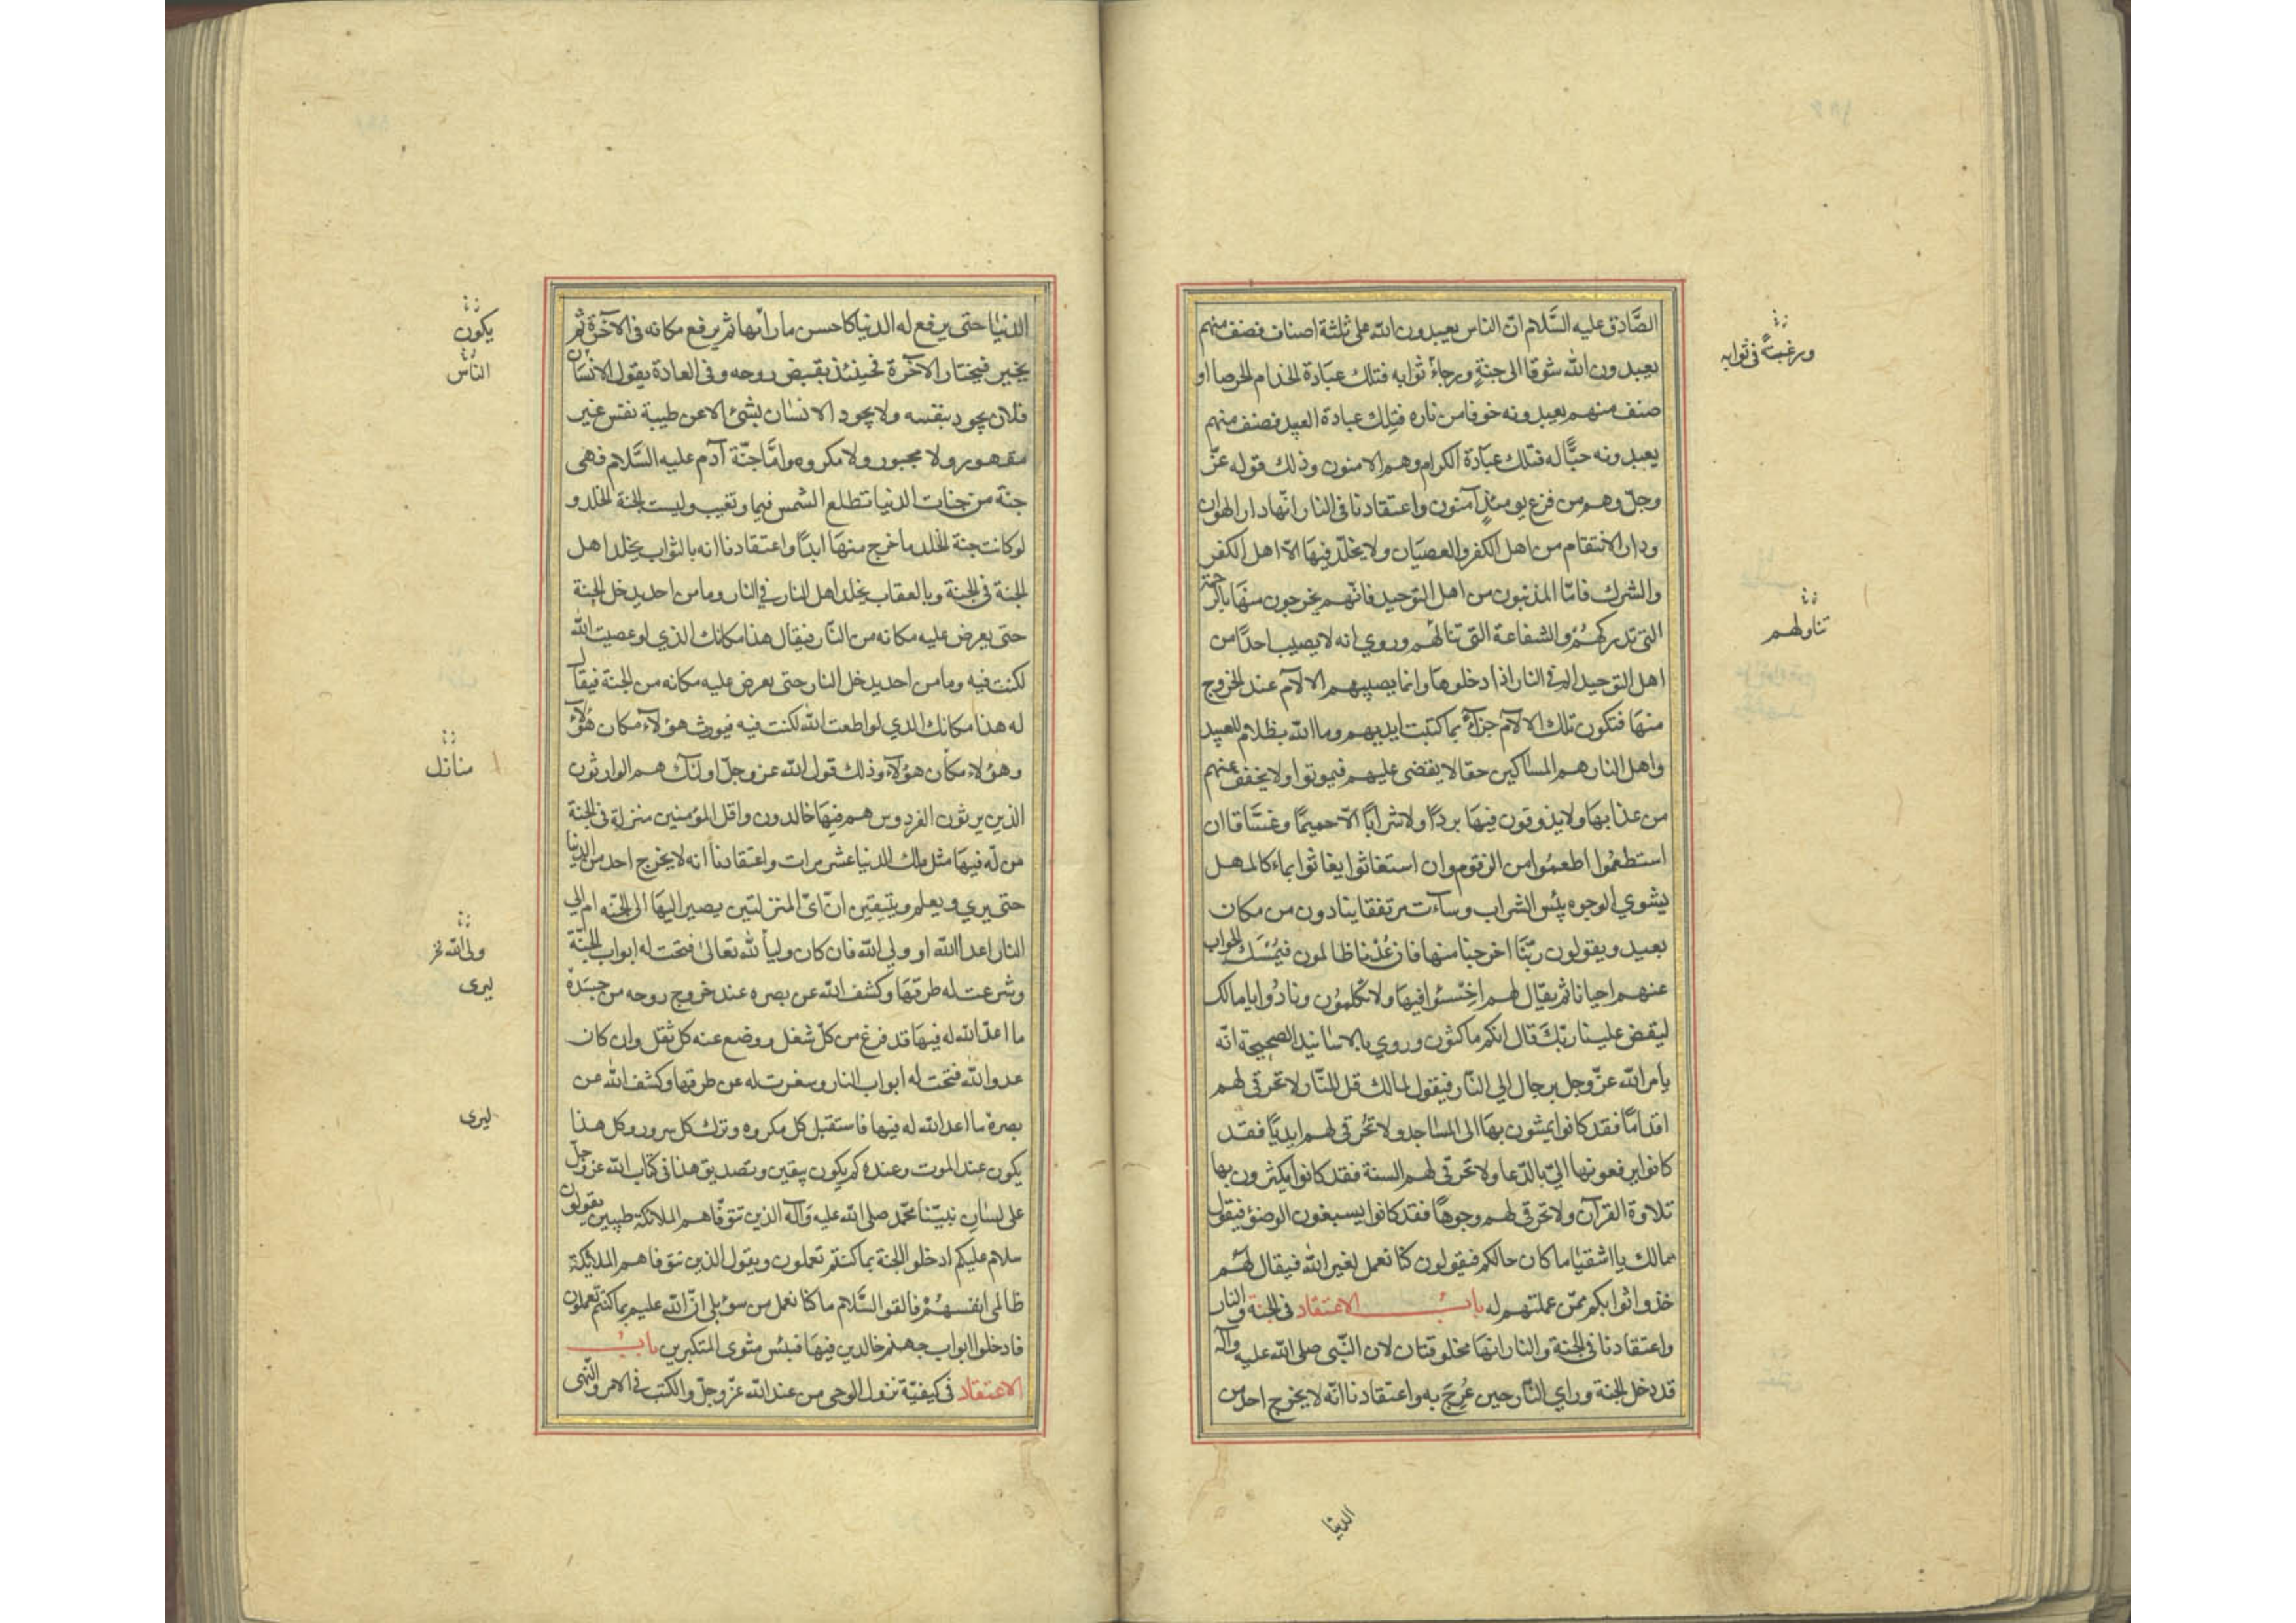 الصَّادق عليه السَّلام انّ الناس يعبدون الله على ثلثة اصناف فصنف منهم
يعبدون الله شوقا الى جنةٍ ورجاءُ ثوابه فتلك عبَادة الخدام الحرصا او
صنف منهم يعبدونه خوفا من ناره فتِلك عبادة العبيد فصنف منهم
يعبدونه حبًّا له فتلك عبَادة الكرام وهم الامنون وذلك قوله عزّ
وجلّ وهم من فزع يومئذٍ آمنون واعتقادنا فى النار انّها دار الهوان
ودار الانتقام من اهل الكفر والعصيَان ولا يخلّد فيهَا الا اهل الكفر
والشرك فامّا المذنبون من اهل التوحيد فانّهم يخرجون منهَا بالرحمة
التى تدركهُمُ والشفاعة التى تنالُهم وروي انه لا يصيب احدًا من
اهل التوحيد الم فى النار اذا دخلوهَا وانما يصيبهم الالآم عند الخروج
منهَا فتكون تلك الالآم جزآءً بما كتبت ايديهم وما الله بظلام للعبيد
واهل النار هم المسَاكين حقا لا يقضى عليهم فيموتوا ولا يخفف عنهم
من عذابهَا ولا يذوقون فيهَا بردًا ولا شرابًا الاّ حميمًا وغسَّاقا ان
استطعمُوا اطعمُوا من الزقوم وان استغاثوا يغاثوا بماء كالمهل
يشوي الوجوه بئس الشراب وساءت مرتفقا ينادون من مكان
بعيد ويقولون ربّنَا اخرجنا منها فان عُدْنا فانا ظالمون فيُمْسَك الجواب
عنهم احيانا ثم يقال لهم اخْسئوا فيهَا ولا تكلمُون ونادَوا يا مالك
ليقض علينا ربّكَ قال انكم ماكثون وروي بالاسَانيد الصحيحة انّه
يامر الله عزّ وجل برجال الي النّار فيقول لمالك قل للنّار لا تحرقى لهم
اقدامًا فقد كانوا يمشون بهَا الى المسَاجد ولا تحُرقى لهم ايديًا فقد
كانوا يرفعونها اليّ بالدّعا ولا تحرقى لهم السنة فقد كانوا يكثرون بها
تلاوة القرآن ولا تحرقى لهم وجوهًا فقد كانوا يسبغون الوضوء فيقول
مالك يا اشقيَا ما كان حالكم فيقولون كنا نعمل لغير الله فيقال لهُم
خذوا ثوابكم ممّن عملتم له باب الاعتقاد فى الجنة والنار
واعتقادنا فى الجنة والنار انهَا مخلوقتان لان النّبى صلى الله عليه وآله
قد دخل الجنة وراي النّار حين عُرِجَ به واعتقادنا انّه لا يخرج احد من
الدنيا
ورغبةً فى ثوابه
تناولهم
الدنيَا حتى يرفع له الدنيا كاحسن ما رأئها ثم يرفع مكانه فى الآخرة ثم
يخير فيختار الآخرة فحينئذ بقبض روحه وفى العادة يقول الانسَان
فلان يجود بنفسه ولا يجود الانسَان بشئ الا عن طيبة نفس غير
مقهور ولا مجبور ولا مكروه وامَّا جنّة آدم عليه السَّلام فهى
جنّة من جنات الدنيا تطلع الشمس فيها وتغيب وليست الجنة الخلد و
لو كانت جنة الخلد ما خرج منهَا ابدًا واعتقادنا انه بالثواب يخلد اهل
الجنة فى الجنة وبالعقاب يخلد اهل النار فى النار وما من احد يدخل الجنة
حتى يعرض عليه مكانه من النّار فيقال هذا مكانك الذي لو عصيت الله
لكنت فيه وما من احد يدخل النار حتى يعرض عليه مكانه من الجنة فيقال
له هذا مكانك الذي لو اطعت الله لكنت فيه فيورث هؤلآء مكان هؤلآء
وهؤلاء مكان هؤلآء وذلك قول الله عز وجلّ اولئك هم الوارثون
الذين يرثون الفردوس هم فيهَا خالدون واقل المؤمنين منزلة فى الجنة
من له فيهَا مثل ملك الدنيا عشر مرات واعتقادنا انه لا يخرج احد من الدنيا
حتى يري ويعلم ويتيقين انّ اىّ المنزلتين يصير اليهَا الى الجنّه ام الي
النار اعدا الله او ولي الله فان كان وليا لله تعالى فتحت له ابواب الجنّة
وشرعت له طرقهَا وكشف الله عن بصره عند خروج روحه من جسَدهْ
ما اعدّ الله له فيهَا قد فرغ من كلّ شغل ووضع عنه كل ثقل وان كان
عدو الله فتحت له ابواب النار وسعرت له عن طرقها وكشف الله عن
بصرهْ ما اعد الله له فيها فاستقبل كل مكروه وترك كل سرور وكل هذا
يكون عند الموت وعنده كم يكون بيقين وتصديق هذا فى كتاب الله عز وجلّ
على لسَان نبيّنا محمّد صلى الله عليه وَآله الذين تتوفّاهم الملائكة طيبين يقولون
سلام عليكم ادخلوا الجنة بما كنتم تعملون ويقول الذين تتوفاهم الملائكة
ظالمى انفسهُمْ فالقوا السَّلام ما كنا نعمل من سوء بلى انّ الله عليم بما كنتم تعملون
فادخلوا ابواب جهنم خالدين فيهَا فبئس مثوى المتكبرين باب
الاعتقاد فى كيفيّة نزول الوحى من عند الله عزّ وجلّ والكتب فى الامر والنّهى
يكون
النّاس
منازل
ولى الله نخ
ليرى
ليرى